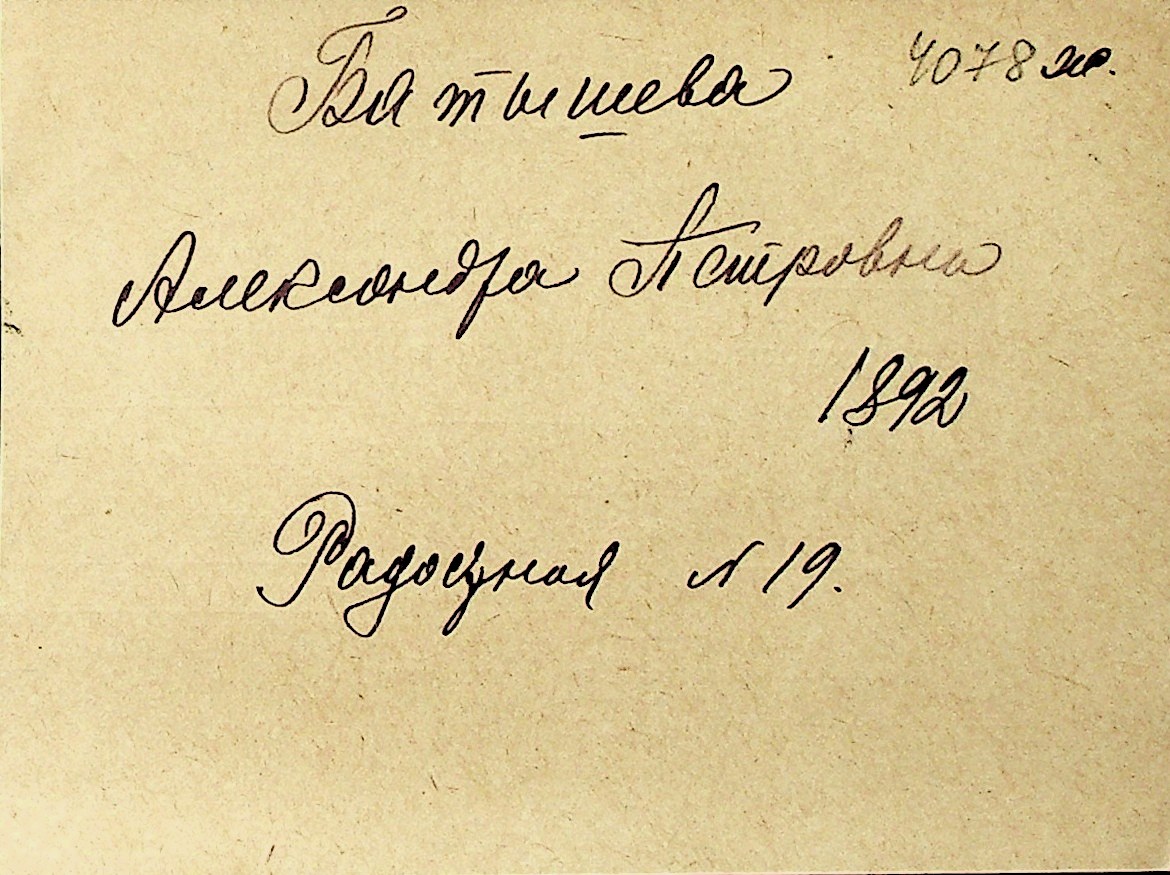 Батышева 4078
Александра Петровна
1892
Радостная N 19.